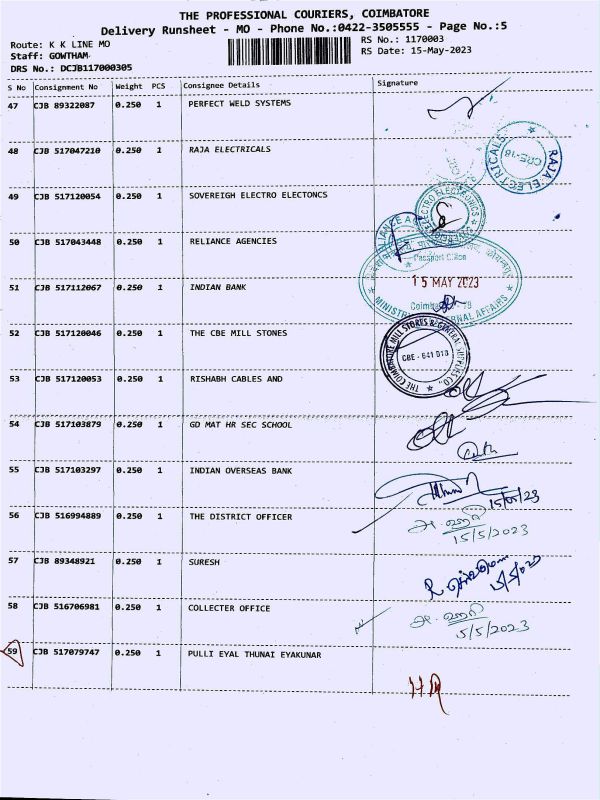 THE PROFESSIONAL COURIERS, COIMBATORE
Delivery Runsheet - MO - Phone No.:0422-3505555 - Page No.:5
Route: K K LINE MO
RS No.: 1170003
Staff: GOWTHAM
RS Date: 15-May-2023
DRS No.: DCJB117000305
S No Consignment No Weight PCS Consignee Details Signature
47 CJB 89322087 0.250 1 PERFECT WELD SYSTEMS
48 CJB 517047210 0.250 1 RAJA ELECTRICALS
RAJA ELECTRICALS
CBE-18
49 CJB 517120054 0.250 1 SOVEREIGH ELECTRO ELECTONCS
50 CJB 517043448 0.250 1 RELIANCE AGENCIES
51 CJB 517112067 0.250 1 INDIAN BANK
15 MAY 2023
52 CJB 517120046 0.250 1 THE CBE MILL STONES
THE COIMBATORE MILL STORES & GENERAL SUPPLIES CO.,
CBE - 641 018
53 CJB 517120053 0.250 1 RISHABH CABLES AND
54 CJB 517103879 0.250 1 GD MAT HR SEC SCHOOL
55 CJB 517103297 0.250 1 INDIAN OVERSEAS BANK
15/05/23
56 CJB 516994889 0.250 1 THE DISTRICT OFFICER
15/5/2023
57 CJB 89348921 0.250 1 SURESH
58 CJB 516706981 0.250 1 COLLECTER OFFICE
5/5/2023
59 CJB 517079747 0.250 1 PULLI EYAL THUNAI EYAKUNAR